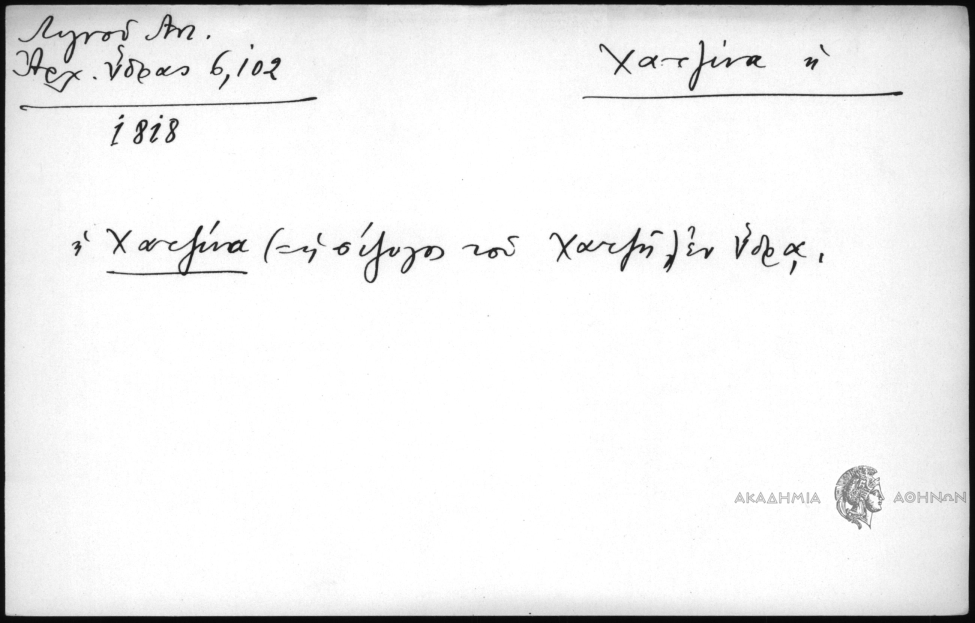 Λιγνοῦ Ἀντ.
Ἀρχ. Ὕδρας 6,102
1818
Χατζίνα ἡ
ἡ Χατζίνα (=ἡ σύζυγος τοῦ Χατζῆ) ἐν Ὕδρᾳ.
ΑΚΑΔΗΜΙΑ ΑΘΗΝΩΝ